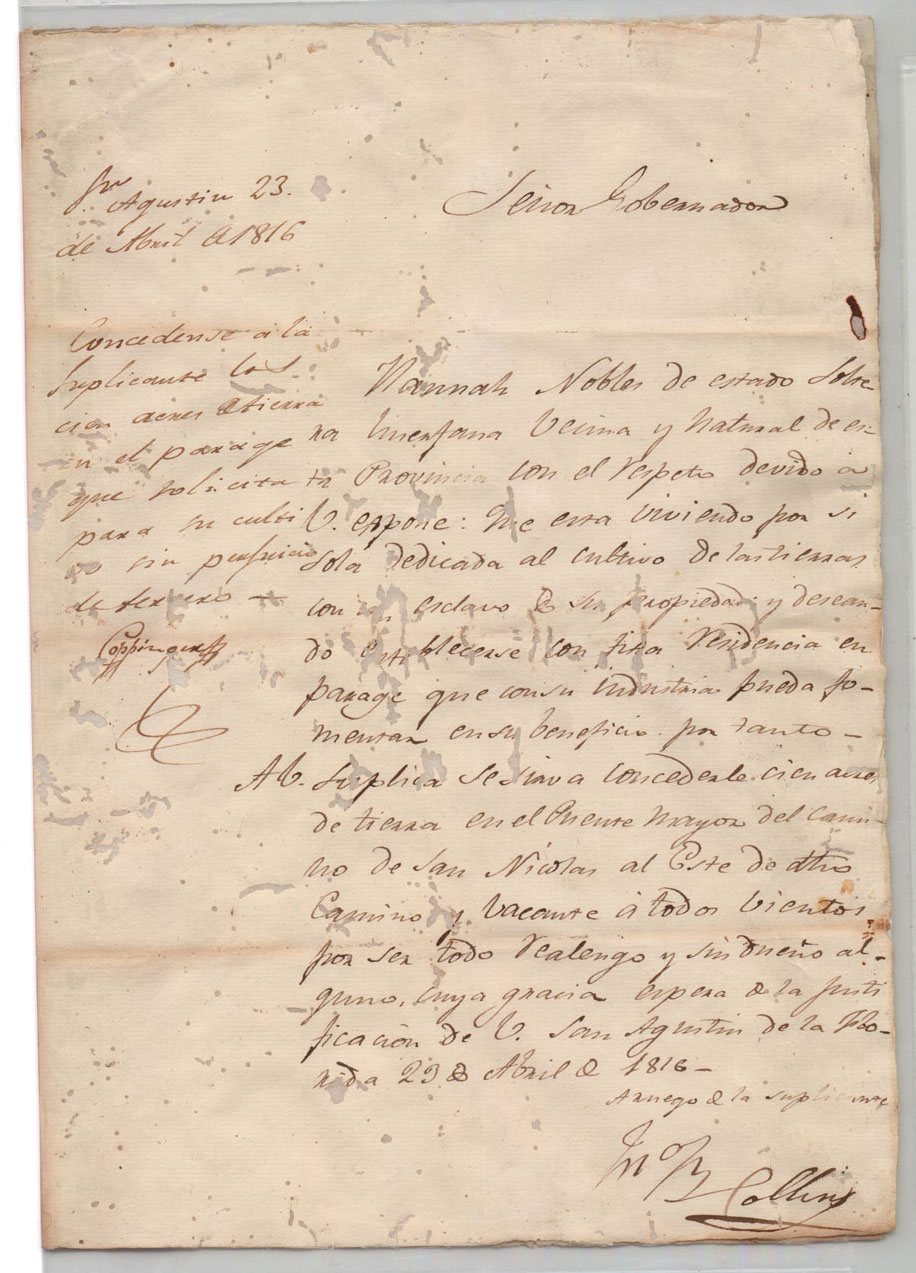 Sn Agustin 23.
de Abril de 1816
Concedense à la
Suplicante los
cien acres de tierra
en el parage
que solicita
para su culti
vo sin perjuicio
de tercero —
Coppinger
Señor Gobernador
Hannah Nobles de estado Solte
ra huerfana Vecina y Natural de es-
ta Provincia con el respeto devido a
V. expone: que esta viviendo por si
sola dedicada al cultivo de las tierras
con un esclavo de su propiedad; y desean-
do establecerse con fixa residencia en
parage que con su industria pueda fo-
mentar en su beneficio. por tanto —
A V. Suplica se sirva concederle cien acres
de tierra en el Puente mayor del Cami-
no de San Nicolas al Este de dho
Camino y Vacante à todos Vientos
por ser todo realengo y sin dueño al-
guno, cuya gracia espera de la justi
ficacion de V. San Agustin de la Flo-
rida 23 de Abril de 1816 —
A ruego de la suplicante
Collins